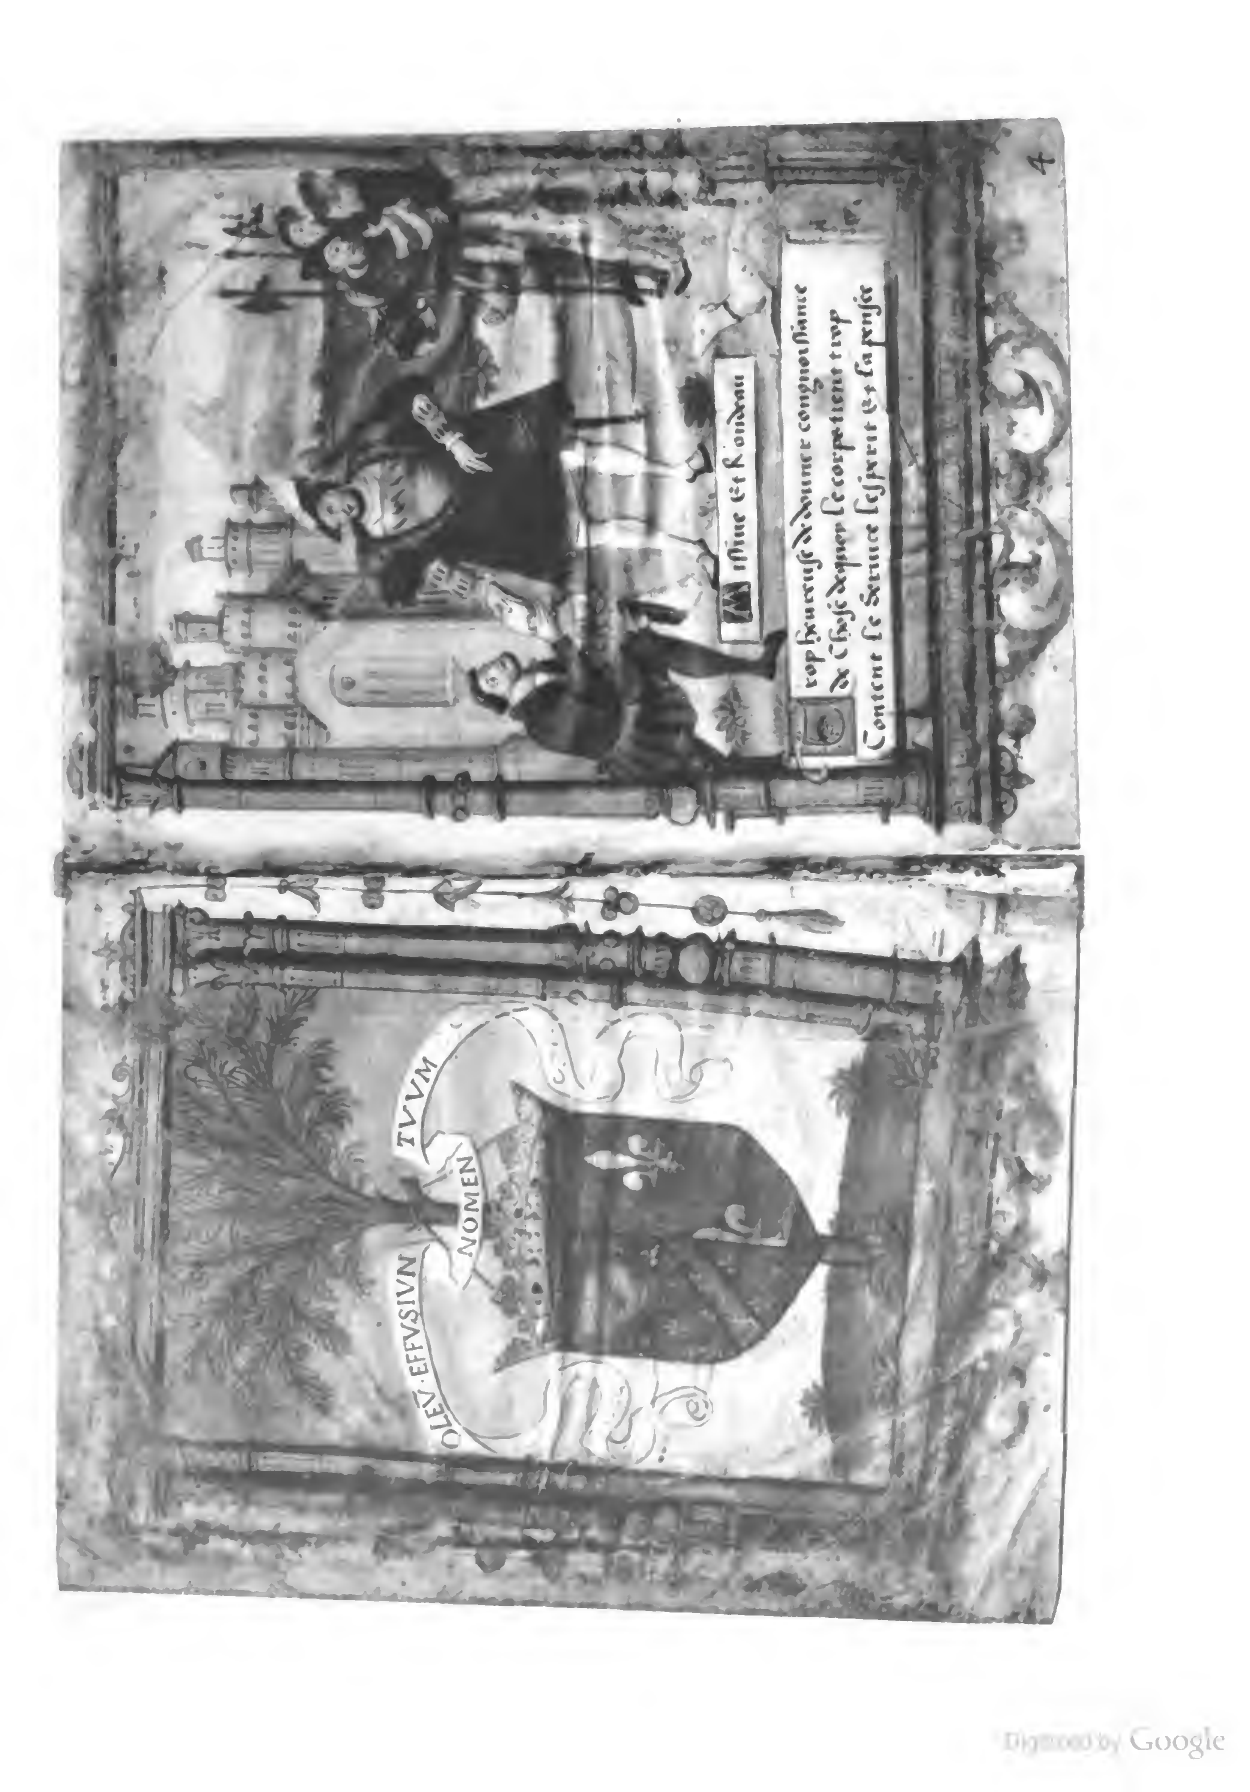 OLEV̄·EFFVSIVN
NOMEN
TVVM
4
Missiue Et Rondeau
rop heureuse de donner congnoissance
de Chose digner le corps tient trop
Content le Seruice lesperit Et la pensee
Digitized by Google